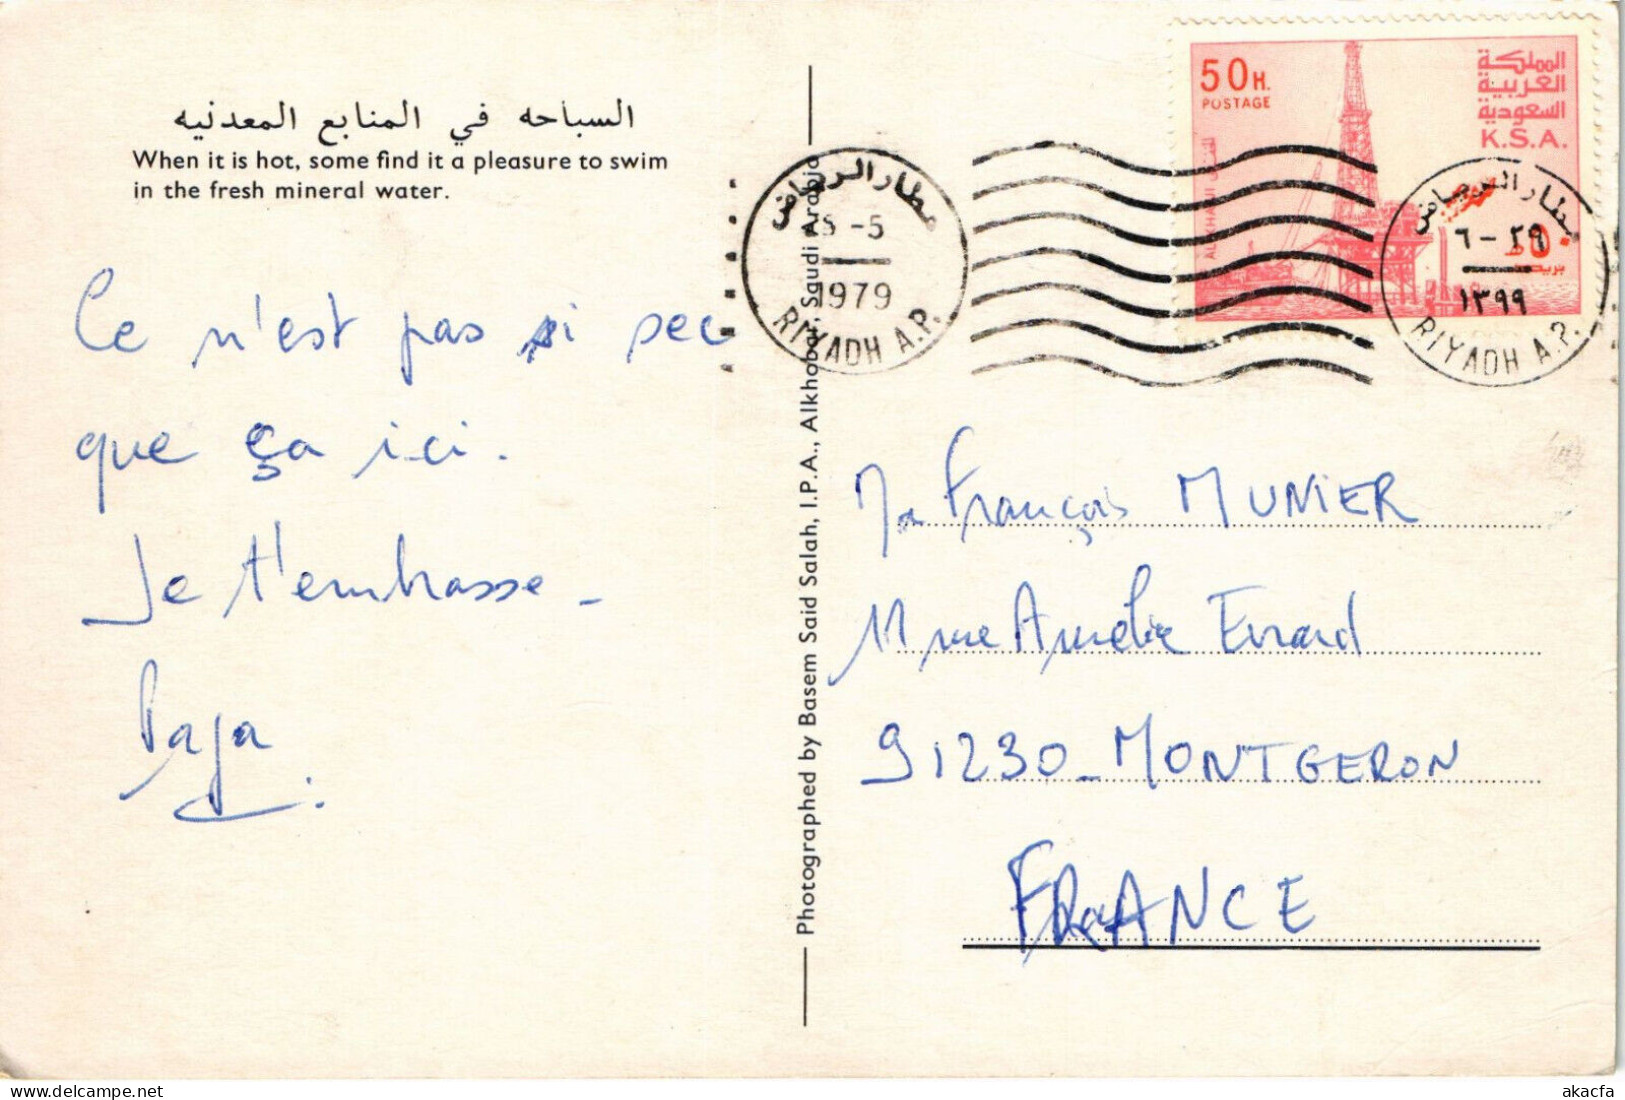 السباحه في المنابع المعدنيه
When it is hot, some find it a pleasure to swim
in the fresh mineral water.
Ce n'est pas si sec
que ça ici.
Je t'embrasse -
Papa
Photographed by Basem Said Salah, I.P.A., Alkhobar, Saudi Arabia
مطار الرياض
-5
1979
RIYADH A.P.
50 H.
POSTAGE
المملكة
العربية
السعودية
K.S.A.
مطار الرياض
٦-٢٩
١٣٩٩
RIYADH A.P.
Mr François MUNIER
11 rue Amélie Evrard
91230 - MONTGERON
FRANCE
akacfa